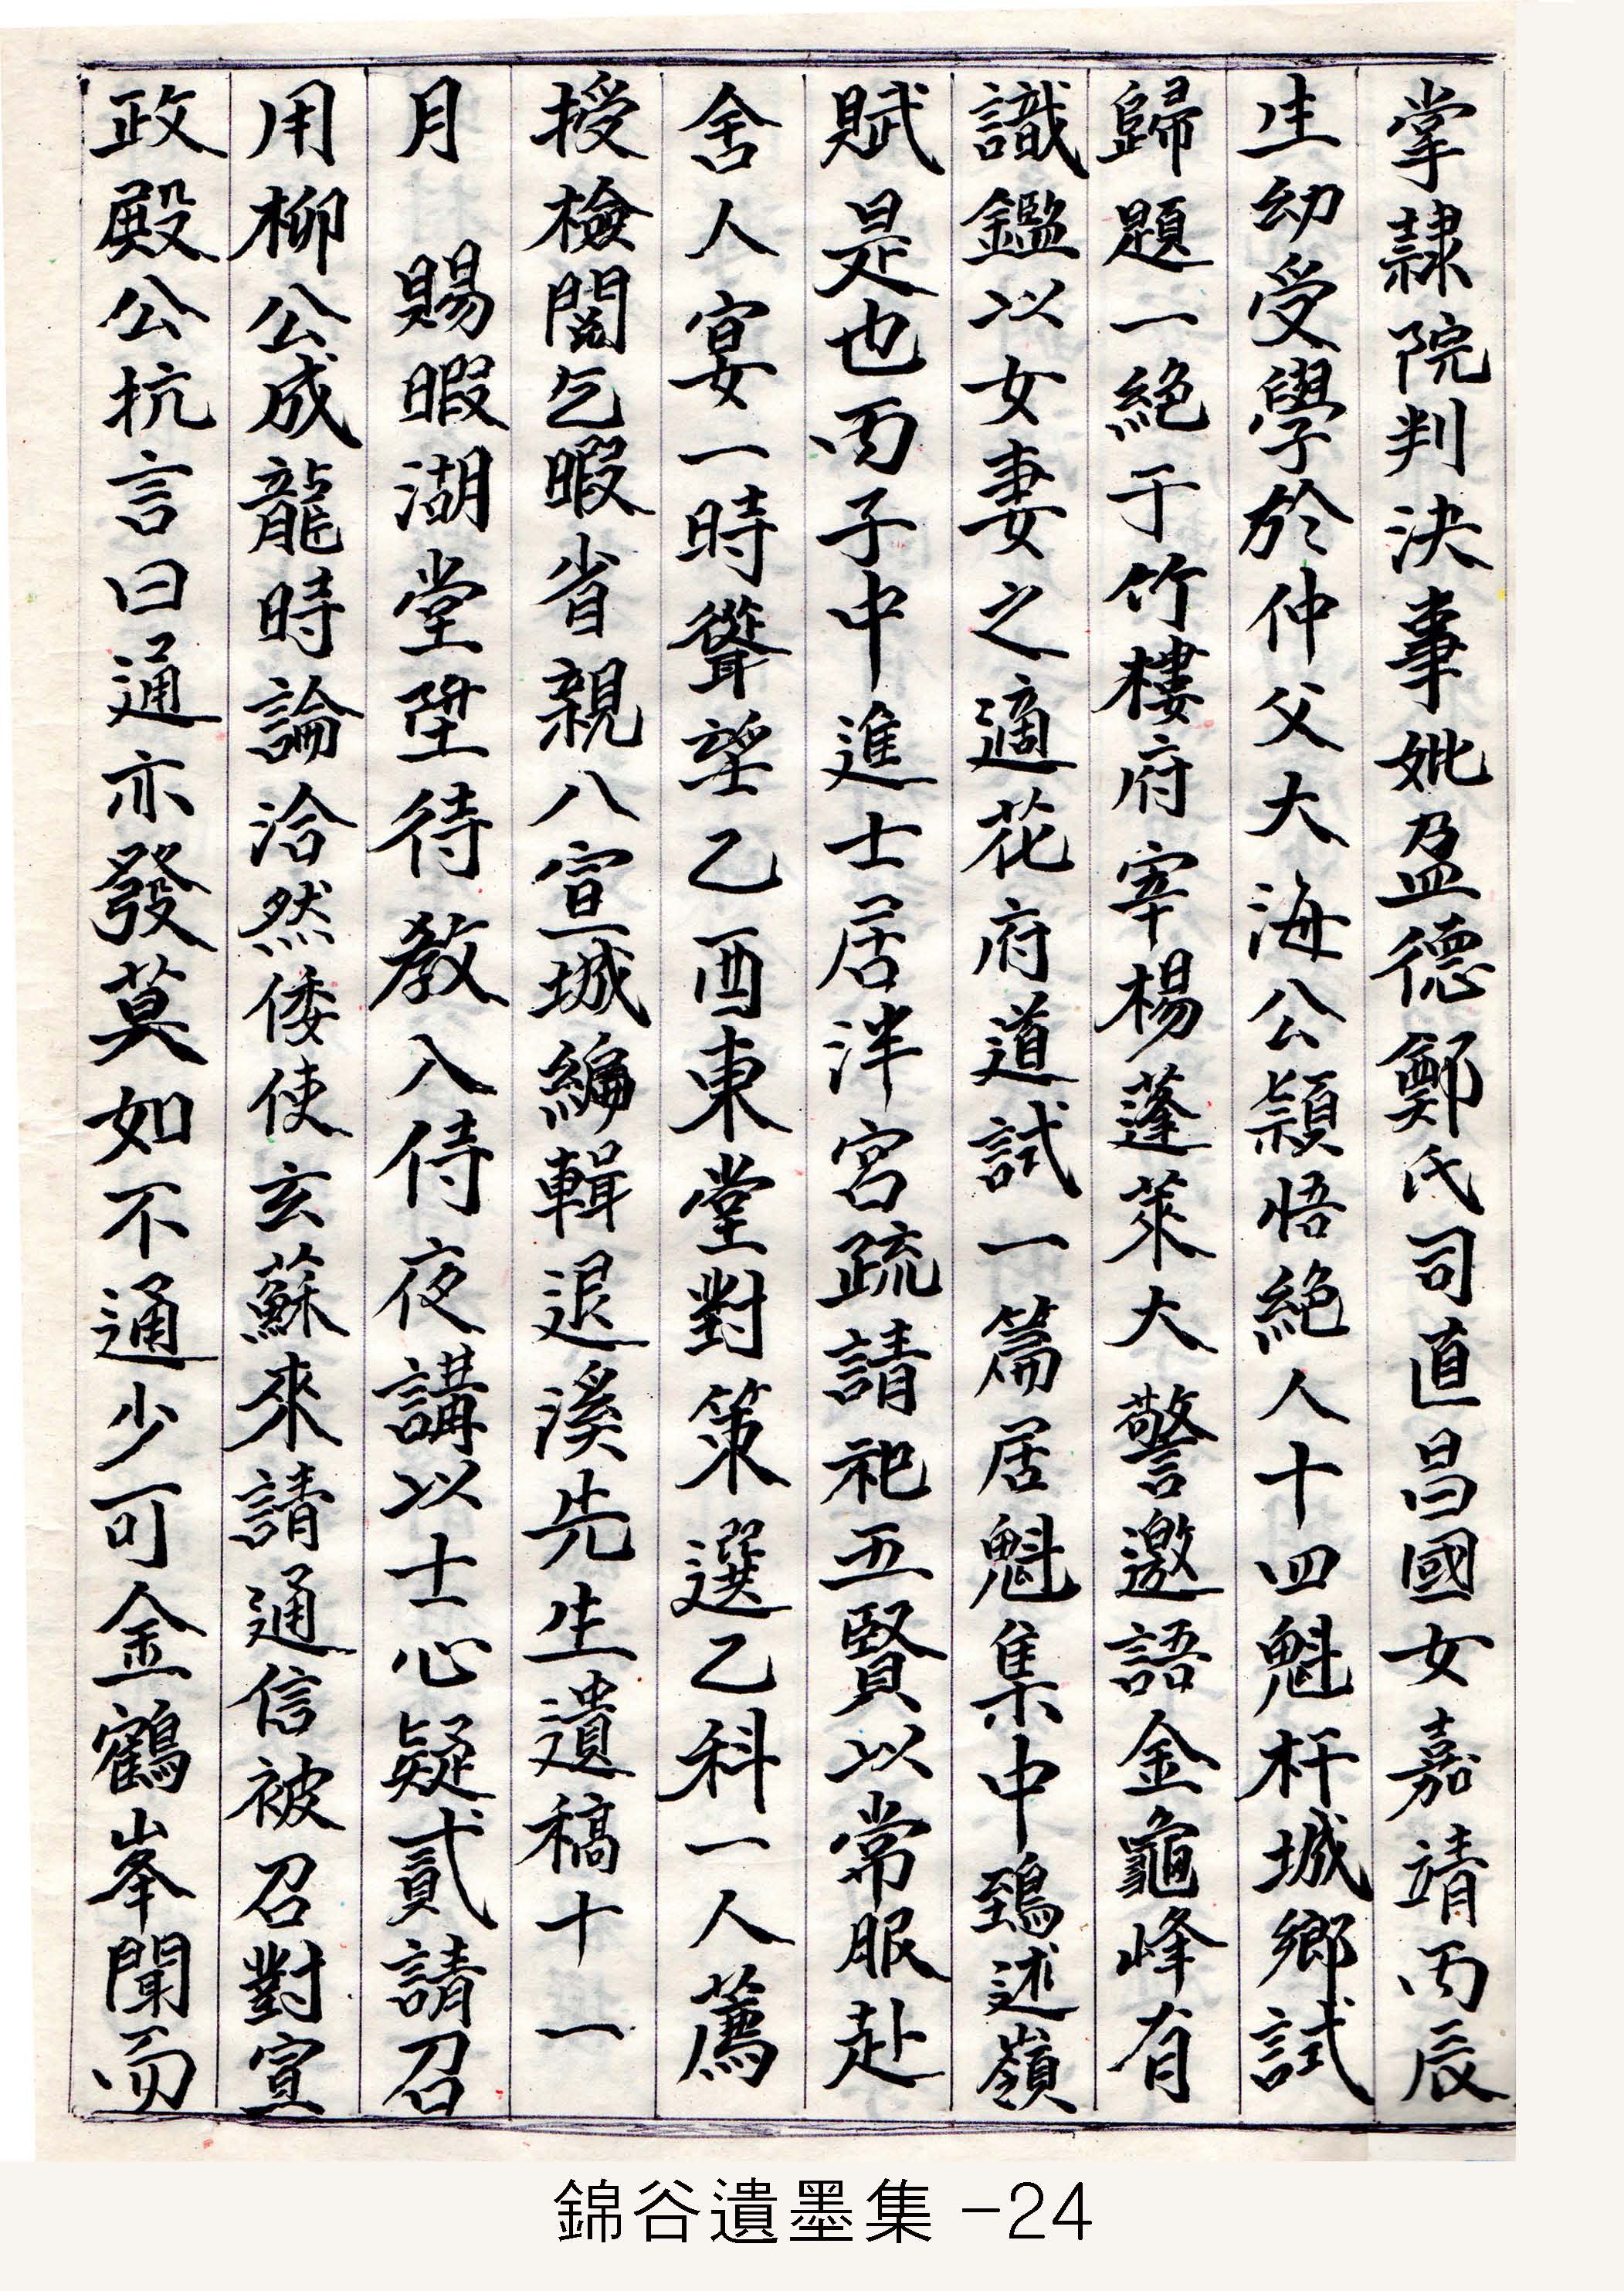 掌隷院判決事妣盈德鄭氏司直昌國女嘉靖丙辰
生幼受學於仲父大海公穎悟絶人十四魁杆城鄉試
歸題一絶于竹樓府宰楊蓬萊大警邀語金龜峰有
識鑑以女妻之適花府道試一篇居魁集中鵄述嶺
賦是也丙子中進士居泮宮疏請祀五賢以常服赴
舍人宴一時聳望乙酉東堂對策選乙科一人薦
授檢閱乞暇省親八宣城編輯退溪先生遺稿十一
月 賜暇湖堂陞待教入侍夜講以士心疑貳請召
用柳公成龍時論洽然倭使玄蘇來請通信被召對宣
政殿公抗言曰通亦發莫如不通少可金鶴峯聞而
錦谷遺墨集 -24